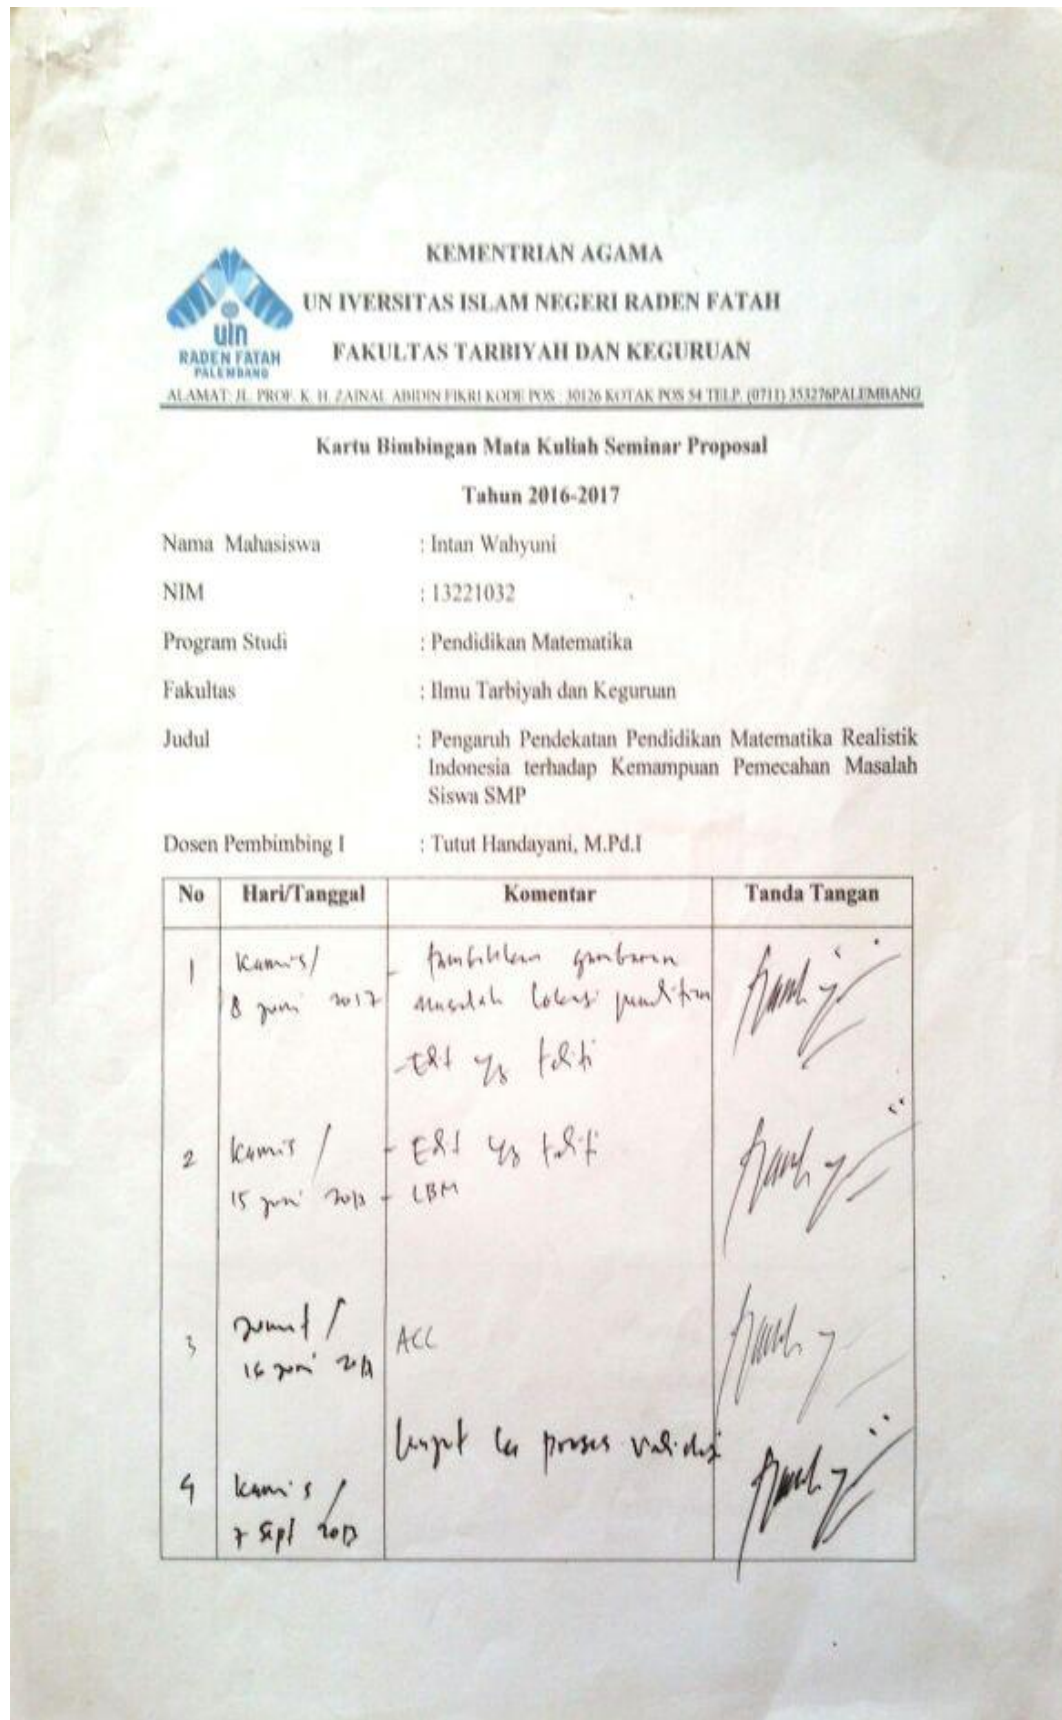 KEMENTRIAN AGAMA
UN IVERSITAS ISLAM NEGERI RADEN FATAH
FAKULTAS TARBIYAH DAN KEGURUAN
uin
RADEN FATAH
PALEMBANG
ALAMAT: JL. PROF. K. H. ZAINAL ABIDIN FIKRI KODE POS : 30126 KOTAK POS 54 TELP. (0711) 353276PALEMBANG
Kartu Bimbingan Mata Kuliah Seminar Proposal
Tahun 2016-2017
Nama Mahasiswa : Intan Wahyuni
NIM : 13221032
Program Studi : Pendidikan Matematika
Fakultas : Ilmu Tarbiyah dan Keguruan
Judul : Pengaruh Pendekatan Pendidikan Matematika Realistik
Indonesia terhadap Kemampuan Pemecahan Masalah
Siswa SMP
Dosen Pembimbing I : Tutut Handayani, M.Pd.I
No Hari/Tanggal Komentar Tanda Tangan
1 Kamis/ - tambahkan gambaran
8 juni 2017 masalah lokasi penelitian
- Edit yg teliti
2 Kamis / - Edit yg teliti
15 juni 2017 - LBM
3 jumat / ACC
16 juni 2017
lanjut ke proses validasi
4 Kamis /
7 Sept 2017